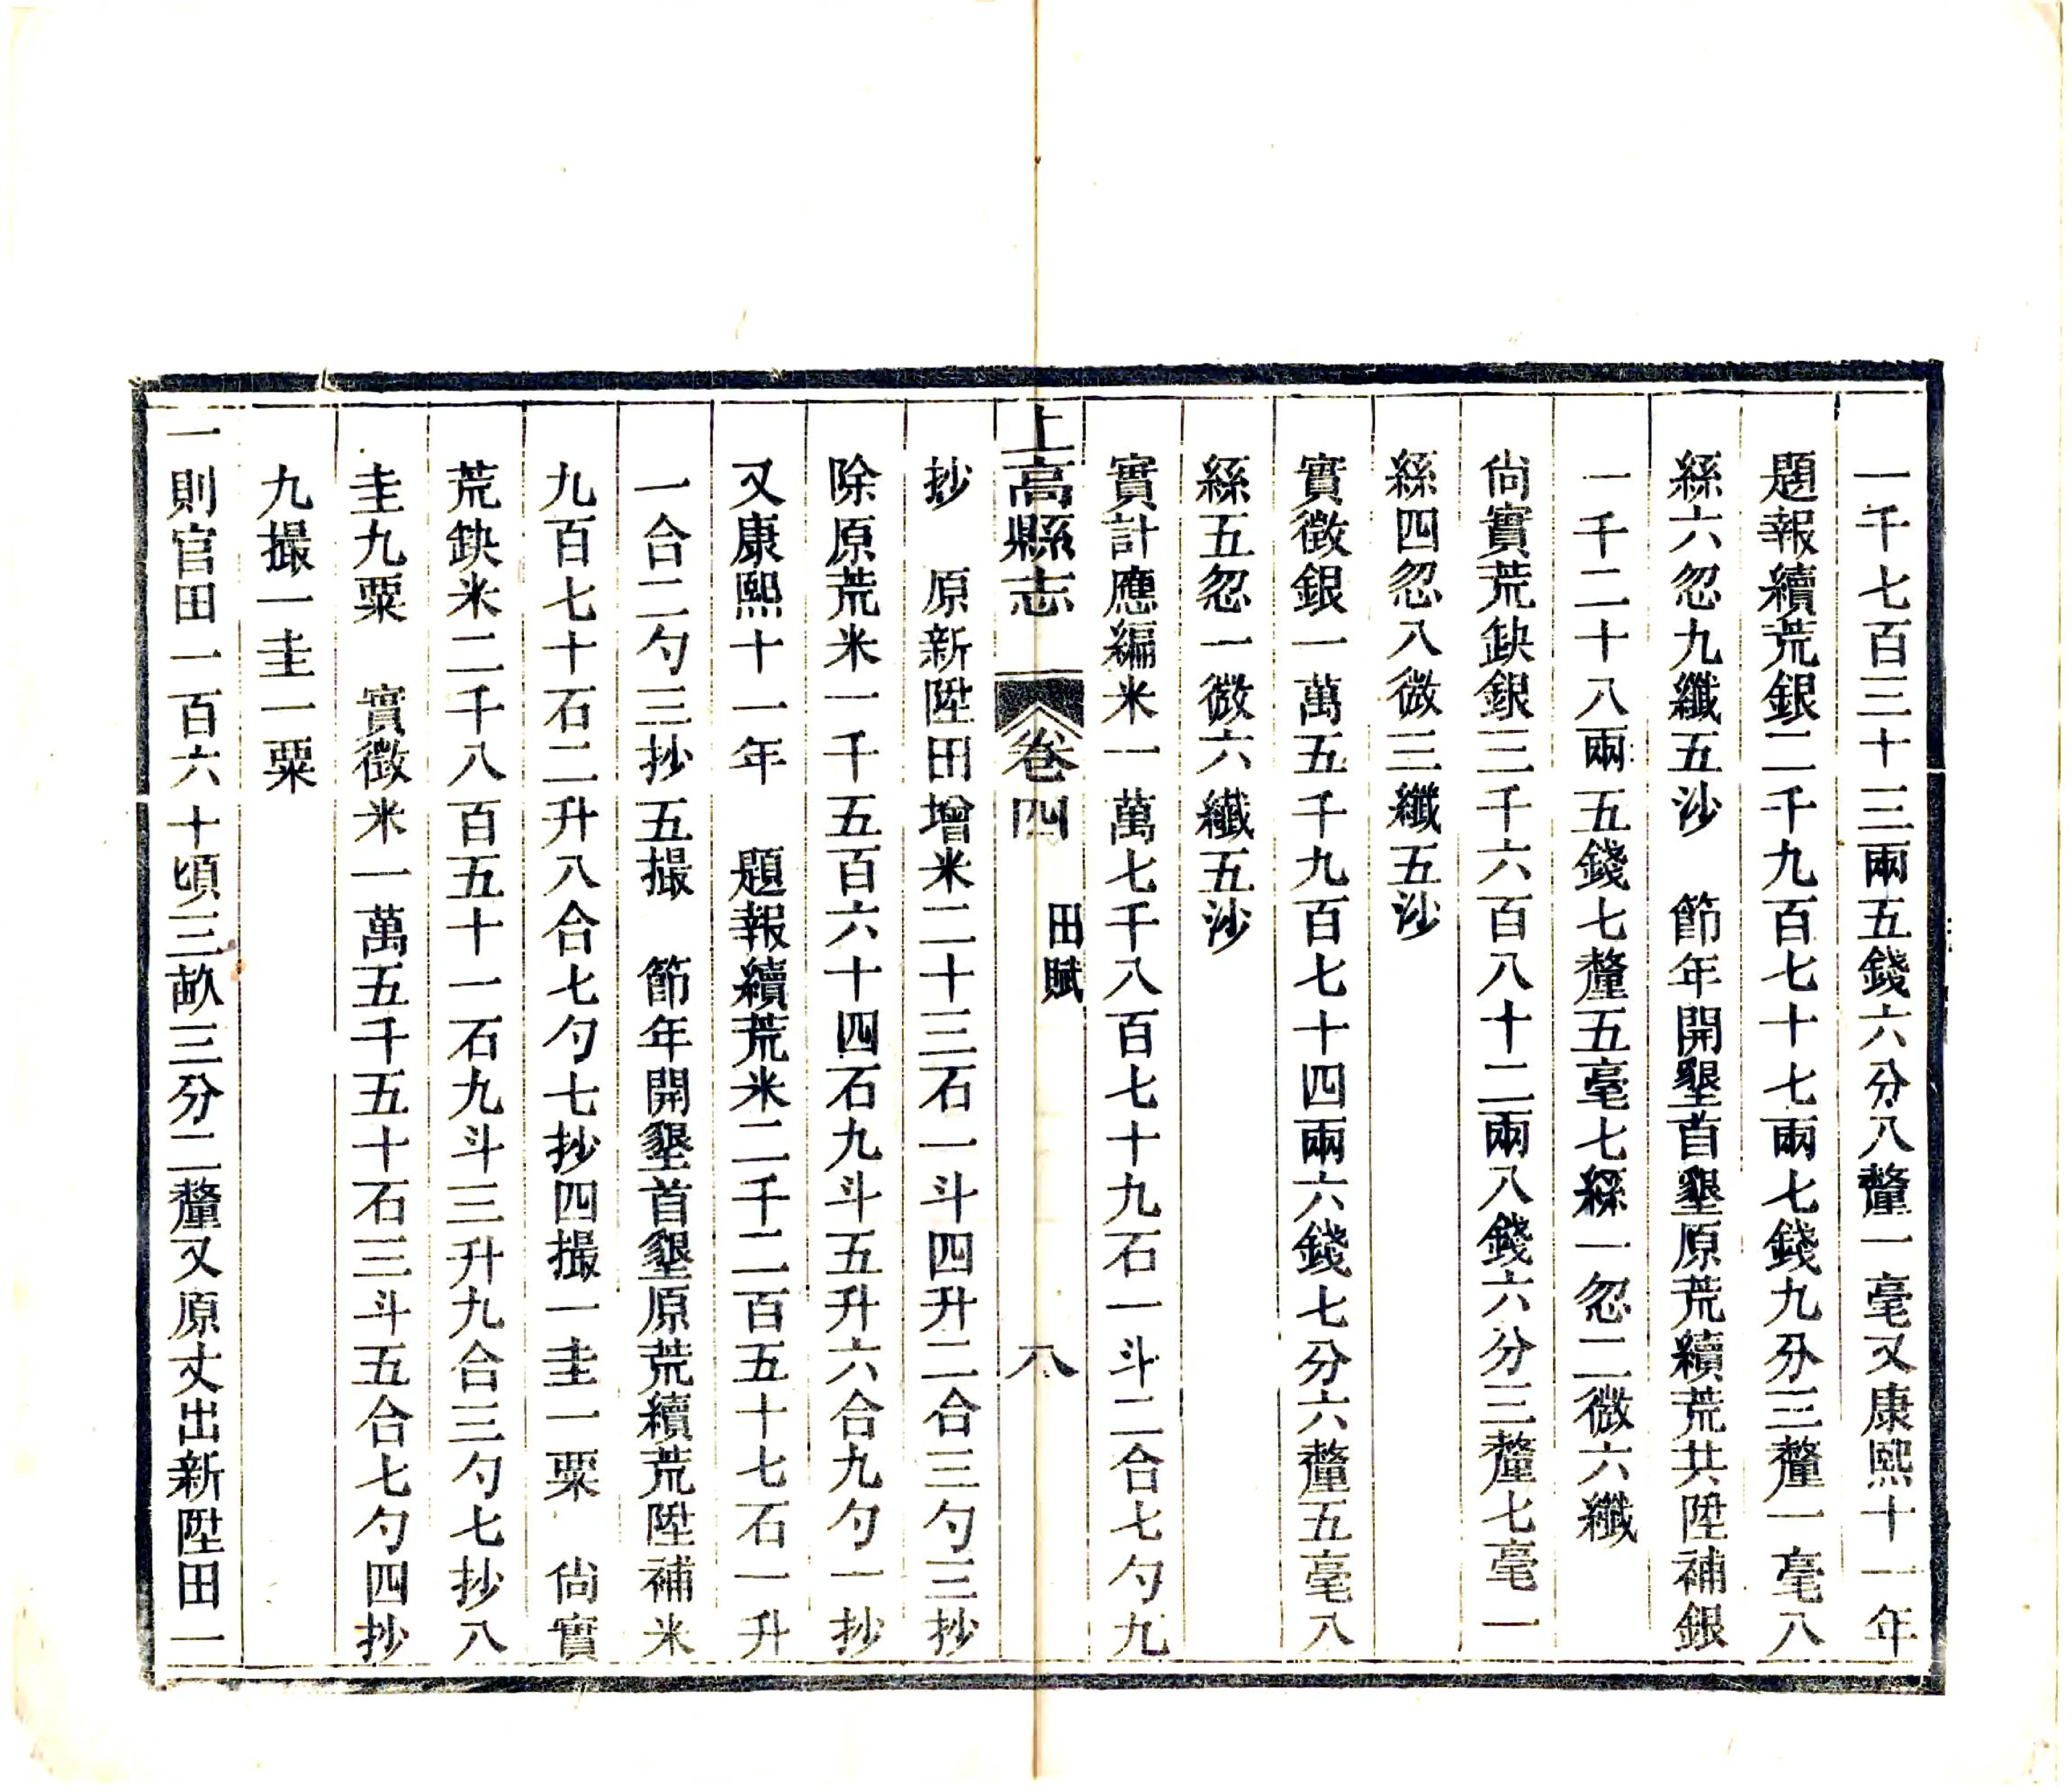 一千七百三十三兩五錢六分八釐一毫又康熙十一年
題報續荒銀二千九百七十七兩七錢九分三釐一毫八
絲六忽九纖五沙　節年開墾首墾原荒續荒共陞補銀
一千二十八兩五錢七釐五毫七絲一忽二微六纖
尙實荒缺銀三千六百八十二兩八錢六分三釐七毫一
絲四忽八微三纖五沙
實徵銀一萬五千九百七十四兩六錢七分六釐五毫八
絲五忽一微六纖五沙
實計應編米一萬七千八百七十九石一斗二合七勺九
上高縣志　卷四　田賦　八
抄　原新陞田增米二十三石一斗四升二合三勺三抄
除原荒米一千五百六十四石九斗五升六合九勺一抄
又康熙十一年　題報續荒米二千二百五十七石一升
一合二勺三抄五撮　節年開墾首墾原荒續荒陞補米
九百七十石二升八合七勺七抄四撮一圭一粟　尙實
荒缺米二千八百五十一石九斗三升九合三勺七抄八
圭九粟　實徵米一萬五千五十石三斗五合七勺四抄
九撮一圭一粟
一則官田一百六十頃三畝三分二釐又原丈出新陞田一